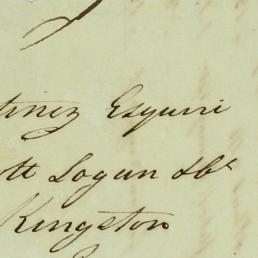 tinez Esquire
ott Logan &Co
Kingston